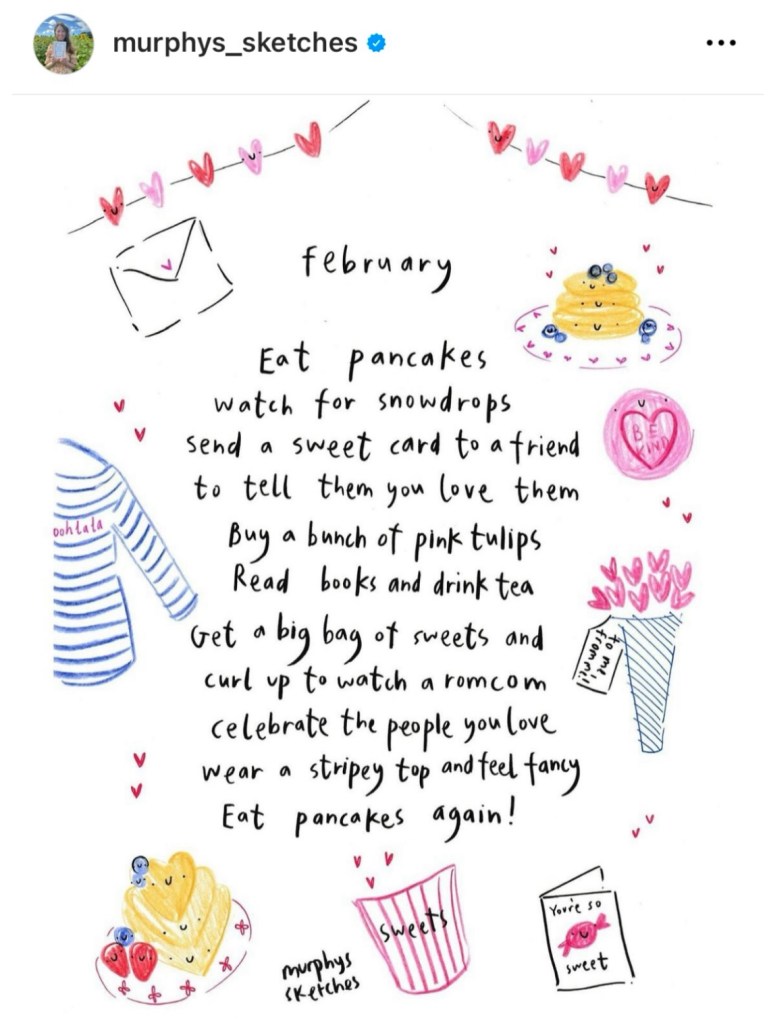 murphys_sketches
february
Eat pancakes
watch for snowdrops
send a sweet card to a friend
to tell them you love them
Buy a bunch of pink tulips
Read books and drink tea
Get a big bag of sweets and
curl up to watch a romcom
celebrate the people you love
wear a stripey top and feel fancy
Eat pancakes again!
BE
KIND
oohlala
to me,
from me!
sweets
murphys
sketches
You're so
sweet